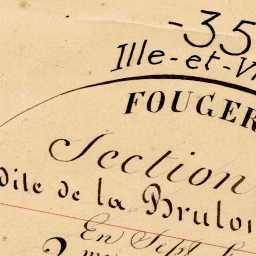 -35
Ille-et-Vi
FOUGER
Section
Dite de la Brulo
En Sept f